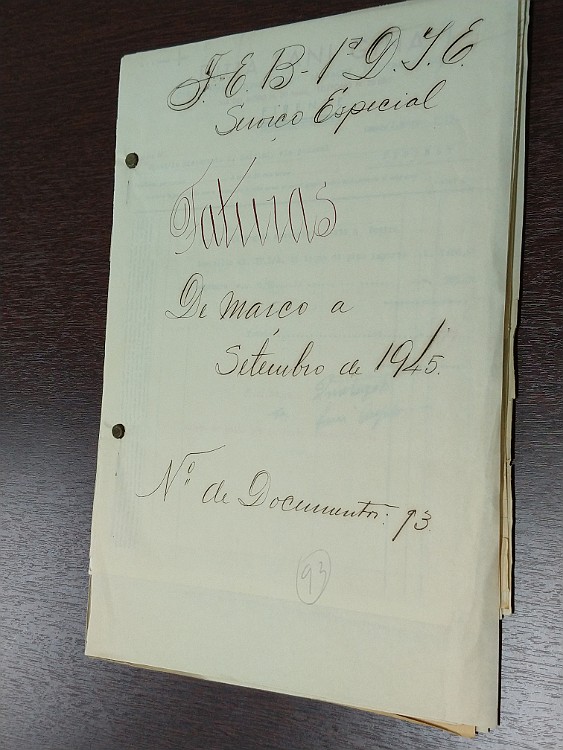 F. E. B - 1ª D. I. E.
Serviço Especial
Faturas
De março a
Setembro de 1945.
Nº de Documentos: 93.
93